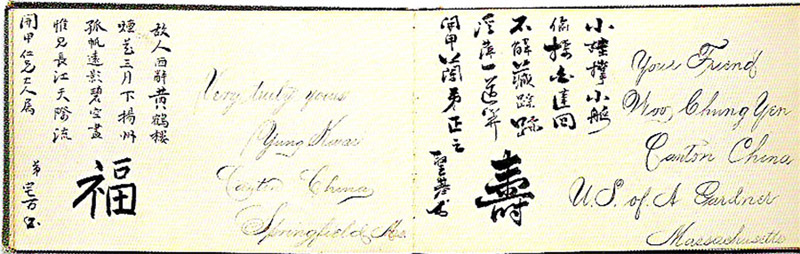 故人西辭黄鶴樓
煙花三月下揚州
孤帆遠影碧空盡
惟見長江天際流
開甲仁兄大人屬
弟
福
Very truly yours
Yung Kwai
Canton China
Springfield Ma.
小娃撐小艇
偷採白蓮回
不解藏踪跡
浮萍一道開
開甲蘭弟正之
書
壽
Your Friend
Woo Chung Yen
Canton China
U.S. of A Gardner
Massachusetts